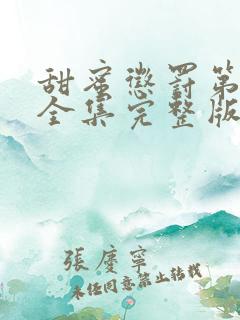 甜蜜懲罰第
全集完整版
張廈寧
未经同意禁止转载